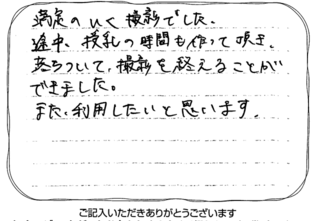 満足のいく撮影でした。
途中、授乳の時間も作って頂き、
落ちついて、撮影を終えることが
できました。
また、利用したいと思います。
ご記入いただきありがとうございます